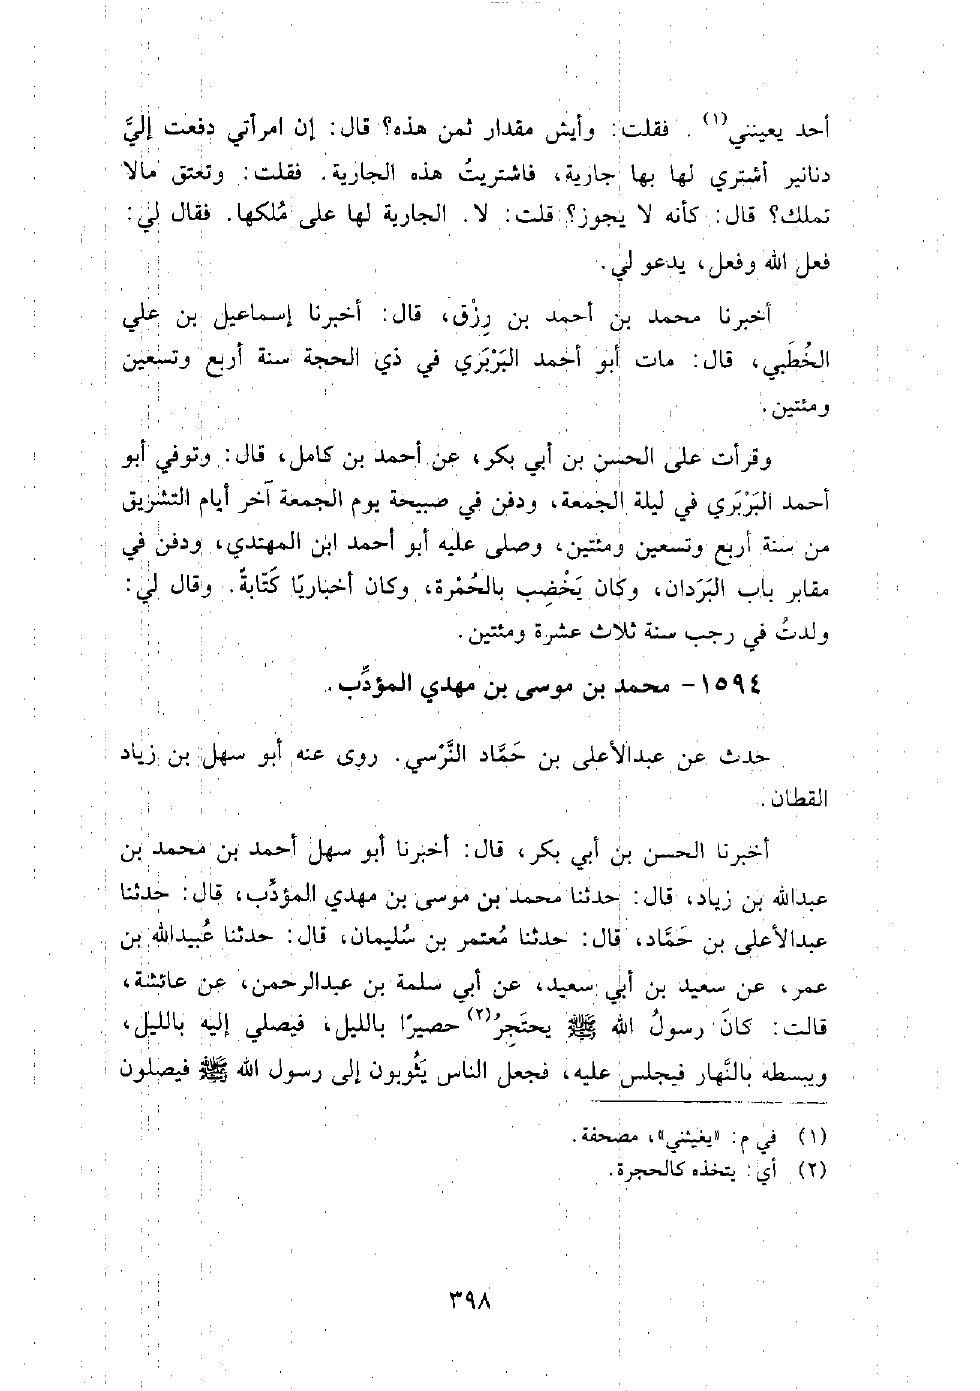 أحد يعينني(١). فقلت: وأيش مقدار ثمن هذه؟ قال: إن امرأتي دفعت إليَّ
دنانير أشتري لها بها جارية، فاشتريتُ هذه الجارية. فقلت: وتعتق مالا
تملك؟ قال: كأنه لا يجوز؟ قلت: لا. الجارية لها على مُلكها. فقال لي:
فعل الله وفعل، يدعو لي.
أخبرنا محمد بن أحمد بن رِزْق، قال: أخبرنا إسماعيل بن علي
الخُطَبي، قال: مات أبو أحمد البَرْبَري في ذي الحجة سنة أربع وتسعين
ومئتين.
وقرأت على الحسن بن أبي بكر، عن أحمد بن كامل، قال: وتوفي أبو
أحمد البَرْبَري في ليلة الجمعة، ودفن في صبيحة يوم الجمعة آخر أيام التشريق
من سنة أربع وتسعين ومئتين، وصلى عليه أبو أحمد ابن المهتدي، ودفن في
مقابر باب البَرَدان، وكان يَخْضِب بالحُمْرة، وكان أخباريًا كَتَّابةً. وقال لي:
ولدتُ في رجب سنة ثلاث عشرة ومئتين.
١٥٩٤- محمد بن موسى بن مهدي المؤدِّب.
حدث عن عبدالأعلى بن حَمَّاد النَّرْسي. روى عنه أبو سهل بن زياد
القطان.
أخبرنا الحسن بن أبي بكر، قال: أخبرنا أبو سهل أحمد بن محمد بن
عبدالله بن زياد، قال: حدثنا محمد بن موسى بن مهدي المؤدِّب، قال: حدثنا
عبدالأعلى بن حَمَّاد، قال: حدثنا مُعتمر بن سُليمان، قال: حدثنا عُبيدالله بن
عمر، عن سعيد بن أبي سعيد، عن أبي سلمة بن عبدالرحمن، عن عائشة،
قالت: كانَ رسولُ الله ﷺ يحتَجِرُ(٢) حصيرًا بالليل، فيصلي إليه بالليل،
ويبسطه بالنَّهار فيجلس عليه، فجعل الناس يَثُوبون إلى رسول الله ﷺ فيصلون
(١) في م: «يغيثني»، مصحفة.
(٢) أي: يتخذه كالحجرة.
٣٩٨